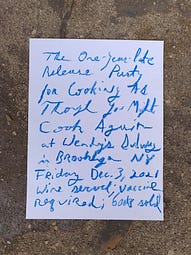 The One-year-late
Release Party
for Cooking As
Though You Might
Cook Again
at Wendy's Subway
in Brooklyn NY
Friday Dec. 3, 2021
Wine served; vaccine
required; books sold